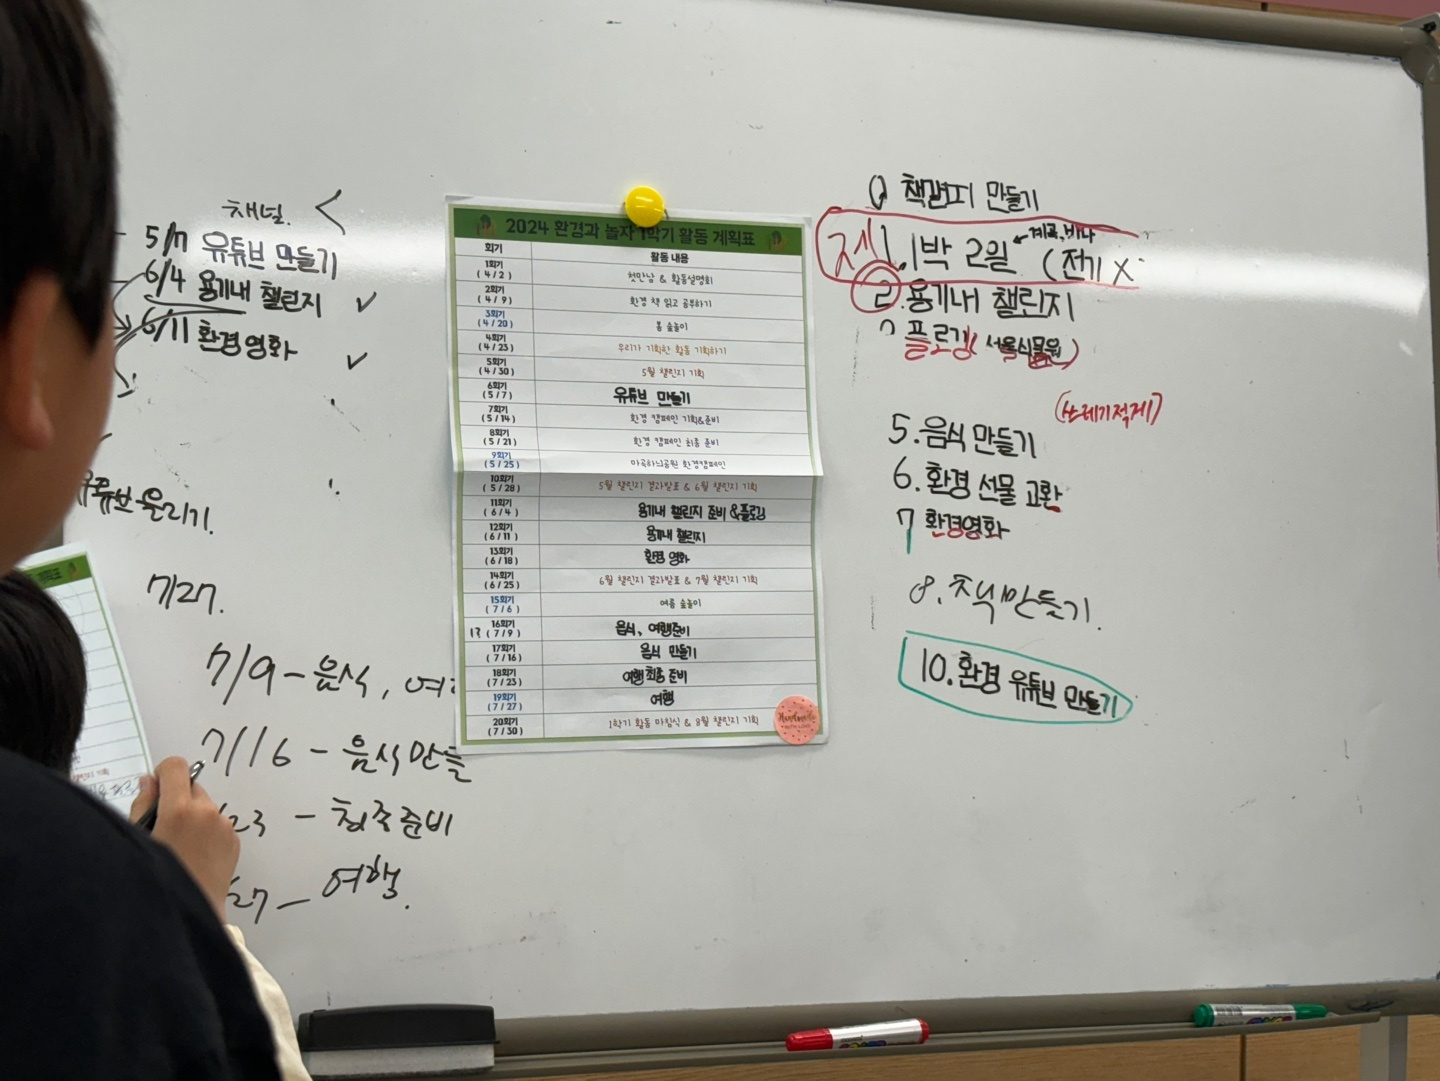 채널. <
5/7 유튜브 만들기
6/4 용기내 챌린지 ✓
6/11 환경영화 ✓
유튜브 올리기.
7/27.
7/9 - 음식,
7/16 - 음식만들
23 - 최종준비
27 - 여행.
2024 환경과 놀자 1학기 활동 계획표
회기 활동 내용
1회기 (4/2) 첫만남 & 활동설명회
2회기 (4/9) 환경 책 읽고 공부하기
3회기 (4/20) 봄 숲놀이
4회기 (4/23) 우리가 기획한 활동 기획하기
5회기 (4/30) 5월 챌린지 기획
6회기 (5/7) 유튜브 만들기
7회기 (5/14) 환경 캠페인 기획&준비
8회기 (5/21) 환경 캠페인 최종 준비
9회기 (5/25) 마곡하늬공원 환경캠페인
10회기 (5/28) 5월 챌린지 결과발표 & 6월 챌린지 기획
11회기 (6/4) 용기내 챌린지 준비 &플로깅
12회기 (6/11) 용기내 챌린지
13회기 (6/18) 환경 영화
14회기 (6/25) 6월 챌린지 결과발표 & 7월 챌린지 기획
15회기 (7/6) 여름 숲놀이
16회기 (7/9) 음식, 여행준비
17회기 (7/16) 음식 만들기
18회기 (7/23) 여행 최종 준비
19회기 (7/27) 여행
20회기 (7/30) 1학기 활동 마침식 & 8월 챌린지 기획
Handmade
WITH LOVE
책갈피 만들기
1. 1박 2일 ← 계곡, 바다 (전기 X
2. 용기내 챌린지
플로깅 (서울식물원)
(쓰레기적게)
5. 음식 만들기
6. 환경 선물 교환
7 환경영화
8. 만들기.
10. 환경 유튜브 만들기